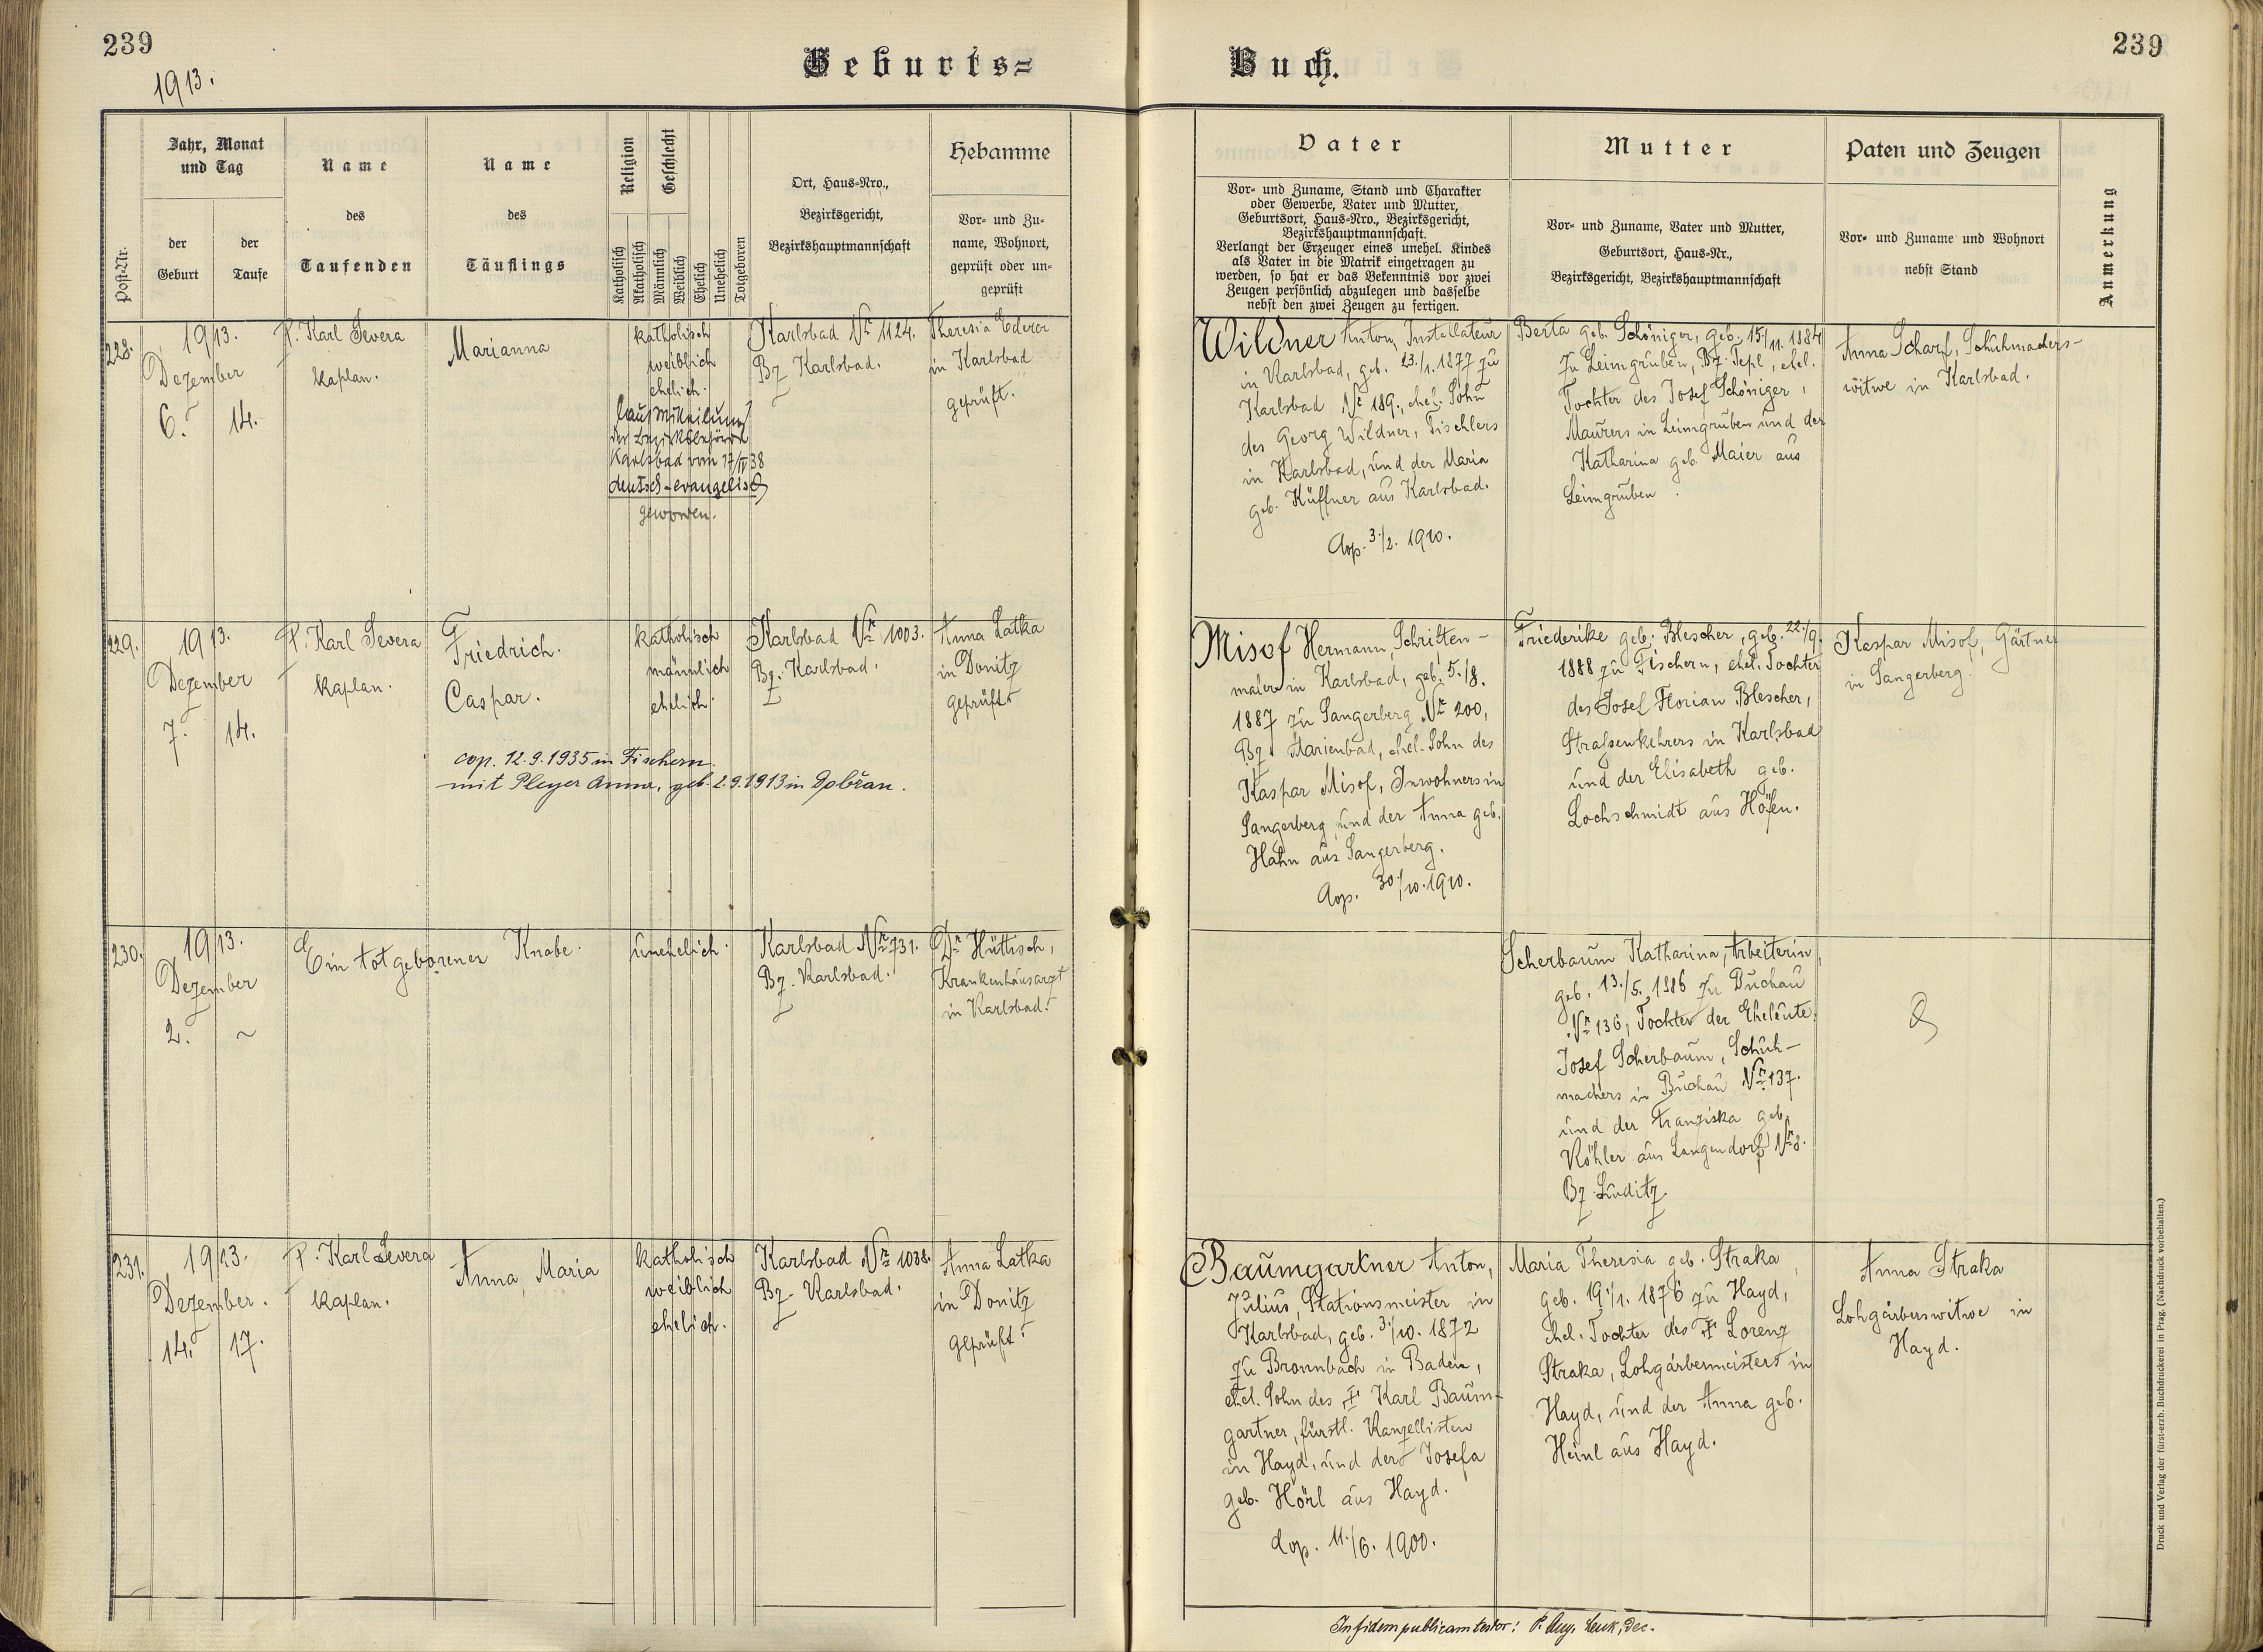 239
1913.
Geburts=
Buch.
239
Post-Nr.
Jahr, Monat
und Tag
der
Geburt
der
Taufe
Name
des
Taufenden
Name
des
Täuflings
Religion
Geschlecht
Katholisch
Akatholisch
Männlich
Weiblich
Ehelich
Unehelich
Totgeboren
Ort, Haus=Nro.,
Bezirksgericht,
Bezirkshauptmannschaft
Hebamme
Vor= und Zu=
name, Wohnort,
geprüft oder un=
geprüft
Vater
Vor= und Zuname, Stand und Charakter
oder Gewerbe, Vater und Mutter,
Geburtsort, Haus=Nro., Bezirksgericht,
Bezirkshauptmannschaft.
Verlangt der Erzeuger eines unehel. Kindes
als Vater in die Matrik eingetragen zu
werden, so hat er das Bekenntnis vor zwei
Zeugen persönlich abzulegen und dasselbe
nebst den zwei Zeugen zu fertigen.
Mutter
Vor= und Zuname, Vater und Mutter,
Geburtsort, Haus=Nr.,
Bezirksgericht, Bezirkshauptmannschaft
Paten und Zeugen
Vor= und Zuname und Wohnort
nebst Stand
Anmerkung
228.
1913.
Dezember
6. 14.
P. Karl Severa
Kaplan.
Marianna
katholisch
weiblich
ehelich.
laut Mitteilung
der Bezirksbehörde
Karlsbad vom 17/IV 38
deutsch-evangelisch
geworden.
Karlsbad Nr 1124.
Bz. Karlsbad.
Theresia Ederer
in Karlsbad
geprüft.
Wildner Anton, Installateur
in Karlsbad, geb. 23./1. 1877 zu
Karlsbad Nr 189., ehel. Sohn
des Georg Wildner, Tischlers
in Karlsbad, und der Maria
geb. Küffner aus Karlsbad.
Cop. 3./2. 1910.
Berta geb. Schöniger, geb. 15./11. 1884
zu Leimgruben, Bz. Tepl, ehel.
Tochter des Josef Schöniger,
Maurers in Leimgruben und der
Katharina geb. Maier aus
Leimgruben.
Anna Scharf, Schuhmachers-
witwe in Karlsbad.
229.
1913.
Dezember
7. 14.
P. Karl Severa
Kaplan.
Friedrich.
Caspar.
cop. 12.9.1935 in Fischern
mit Pleyer Anna, geb. 2.9.1913 in Dobřan.
katholisch
männlich
ehelich.
Karlsbad Nr 1003.
Bz. Karlsbad.
Anna Latka
in Donitz
geprüft
Misof Hermann, Schriften-
maler in Karlsbad, geb. 5./8.
1887 zu Sangerberg Nr 200,
Bz. Marienbad, ehel. Sohn des
Kaspar Misof, Inwohners in
Sangerberg und der Anna geb.
Hahn aus Sangerberg.
Cop. 30./10. 1910.
Friederike geb. Blescher, geb. 22./9.
1888 zu Fischern, ehel. Tochter
des Josef Florian Blescher,
Strassenkehrers in Karlsbad
und der Elisabeth geb.
Lochschmidt aus Höfen.
Kaspar Misof, Gärtner
in Sangerberg.
230.
1913.
Dezember
2. ~
Ein totgeborener Knabe.
unehelich.
Karlsbad Nr 731.
Bz. Karlsbad.
Dr Hüttisch,
Krankenhausarzt
in Karlsbad.
Scherbaum Katharina, Arbeiterin,
geb. 13./5. 1886 zu Buchau
Nr 136, Tochter der Eheleute
Josef Scherbaum, Schuh-
machers in Buchau Nr 137.
und der Franziska geb.
Köhler aus Langendorf Nr 8.
Bz. Luditz.
231.
1913.
Dezember.
14. 17.
P. Karl Severa
Kaplan.
Anna Maria
katholisch
weiblich
ehelich.
Karlsbad Nr 1038.
Bz. Karlsbad.
Anna Latka
in Donitz
geprüft.
Baumgartner Anton,
Julius, Stationsmeister in
Karlsbad, geb. 3./10. 1872
zu Bronnbach in Baden,
ehel. Sohn des † Karl Baum-
gartner, fürstl. Kanzellisten
in Hayd, und der Josefa
geb. Hörl aus Hayd.
Cop. 11./6. 1900.
Maria Theresia geb. Straka,
geb. 19./1. 1876 zu Hayd,
ehel. Tochter des † Lorenz
Straka, Lohgärbermeisters in
Hayd, und der Anna geb.
Heinl aus Hayd.
Anna Straka
Lohgärberswitwe in
Hayd.
In fidem publicam testor: P. Aug. Lenk, Dec.
Druck und Verlag der fürst-erzb. Buchdruckerei in Prag. (Nachdruck vorbehalten.)